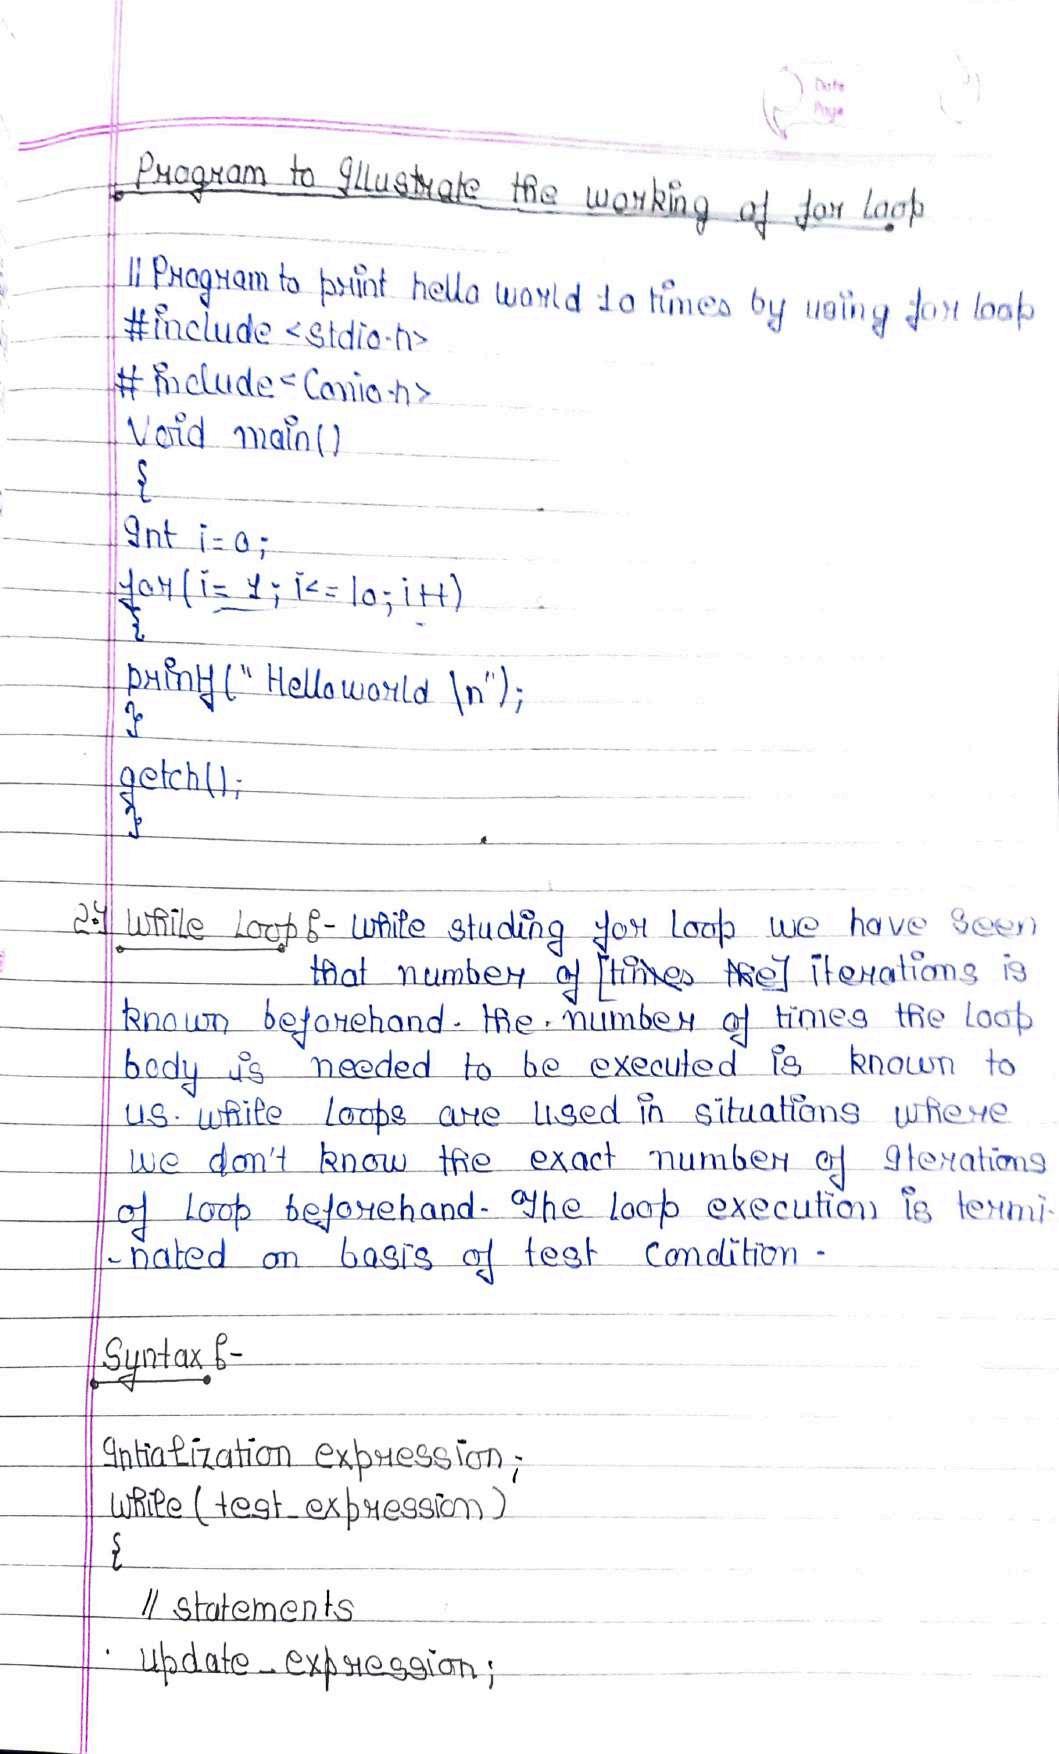 Date
Page
Program to Illustrate the working of for Loop
// Program to print hello world 10 times by using for loop
#include <stdio.h>
# include <Conio.h>
Void main()
{
Int i=0;
for(i=1; i<=10; i++)
{
printf(" Hello world \n");
}
getch();
}
2.) While Loop :- While studing for loop we have seen
that number of [times the] iterations is
known beforehand. the number of times the loop
body is needed to be executed is known to
us. while loops are used in situations where
we don't know the exact number of Iterations
of loop beforehand. The loop execution is termi-
-nated on basis of test condition.
Syntax :-
Intialization expression;
while (test_expression)
{
// statements
update_expression;